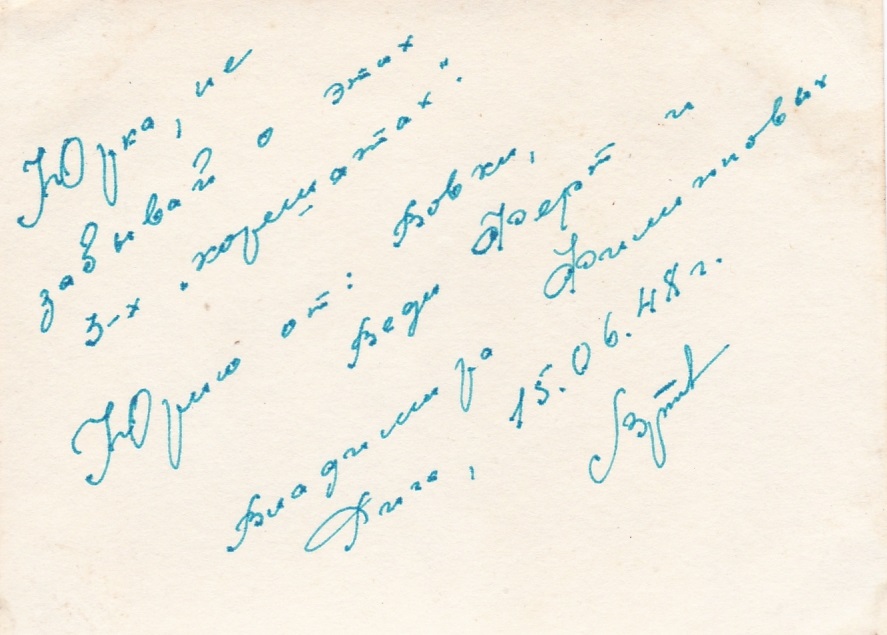 Юрка, не
забывай о этих
3-х „корешатах".
Юрию от: Вовки,
Веди Ферт и
Владимира Филипповых
Рига, 15.06.48 г.